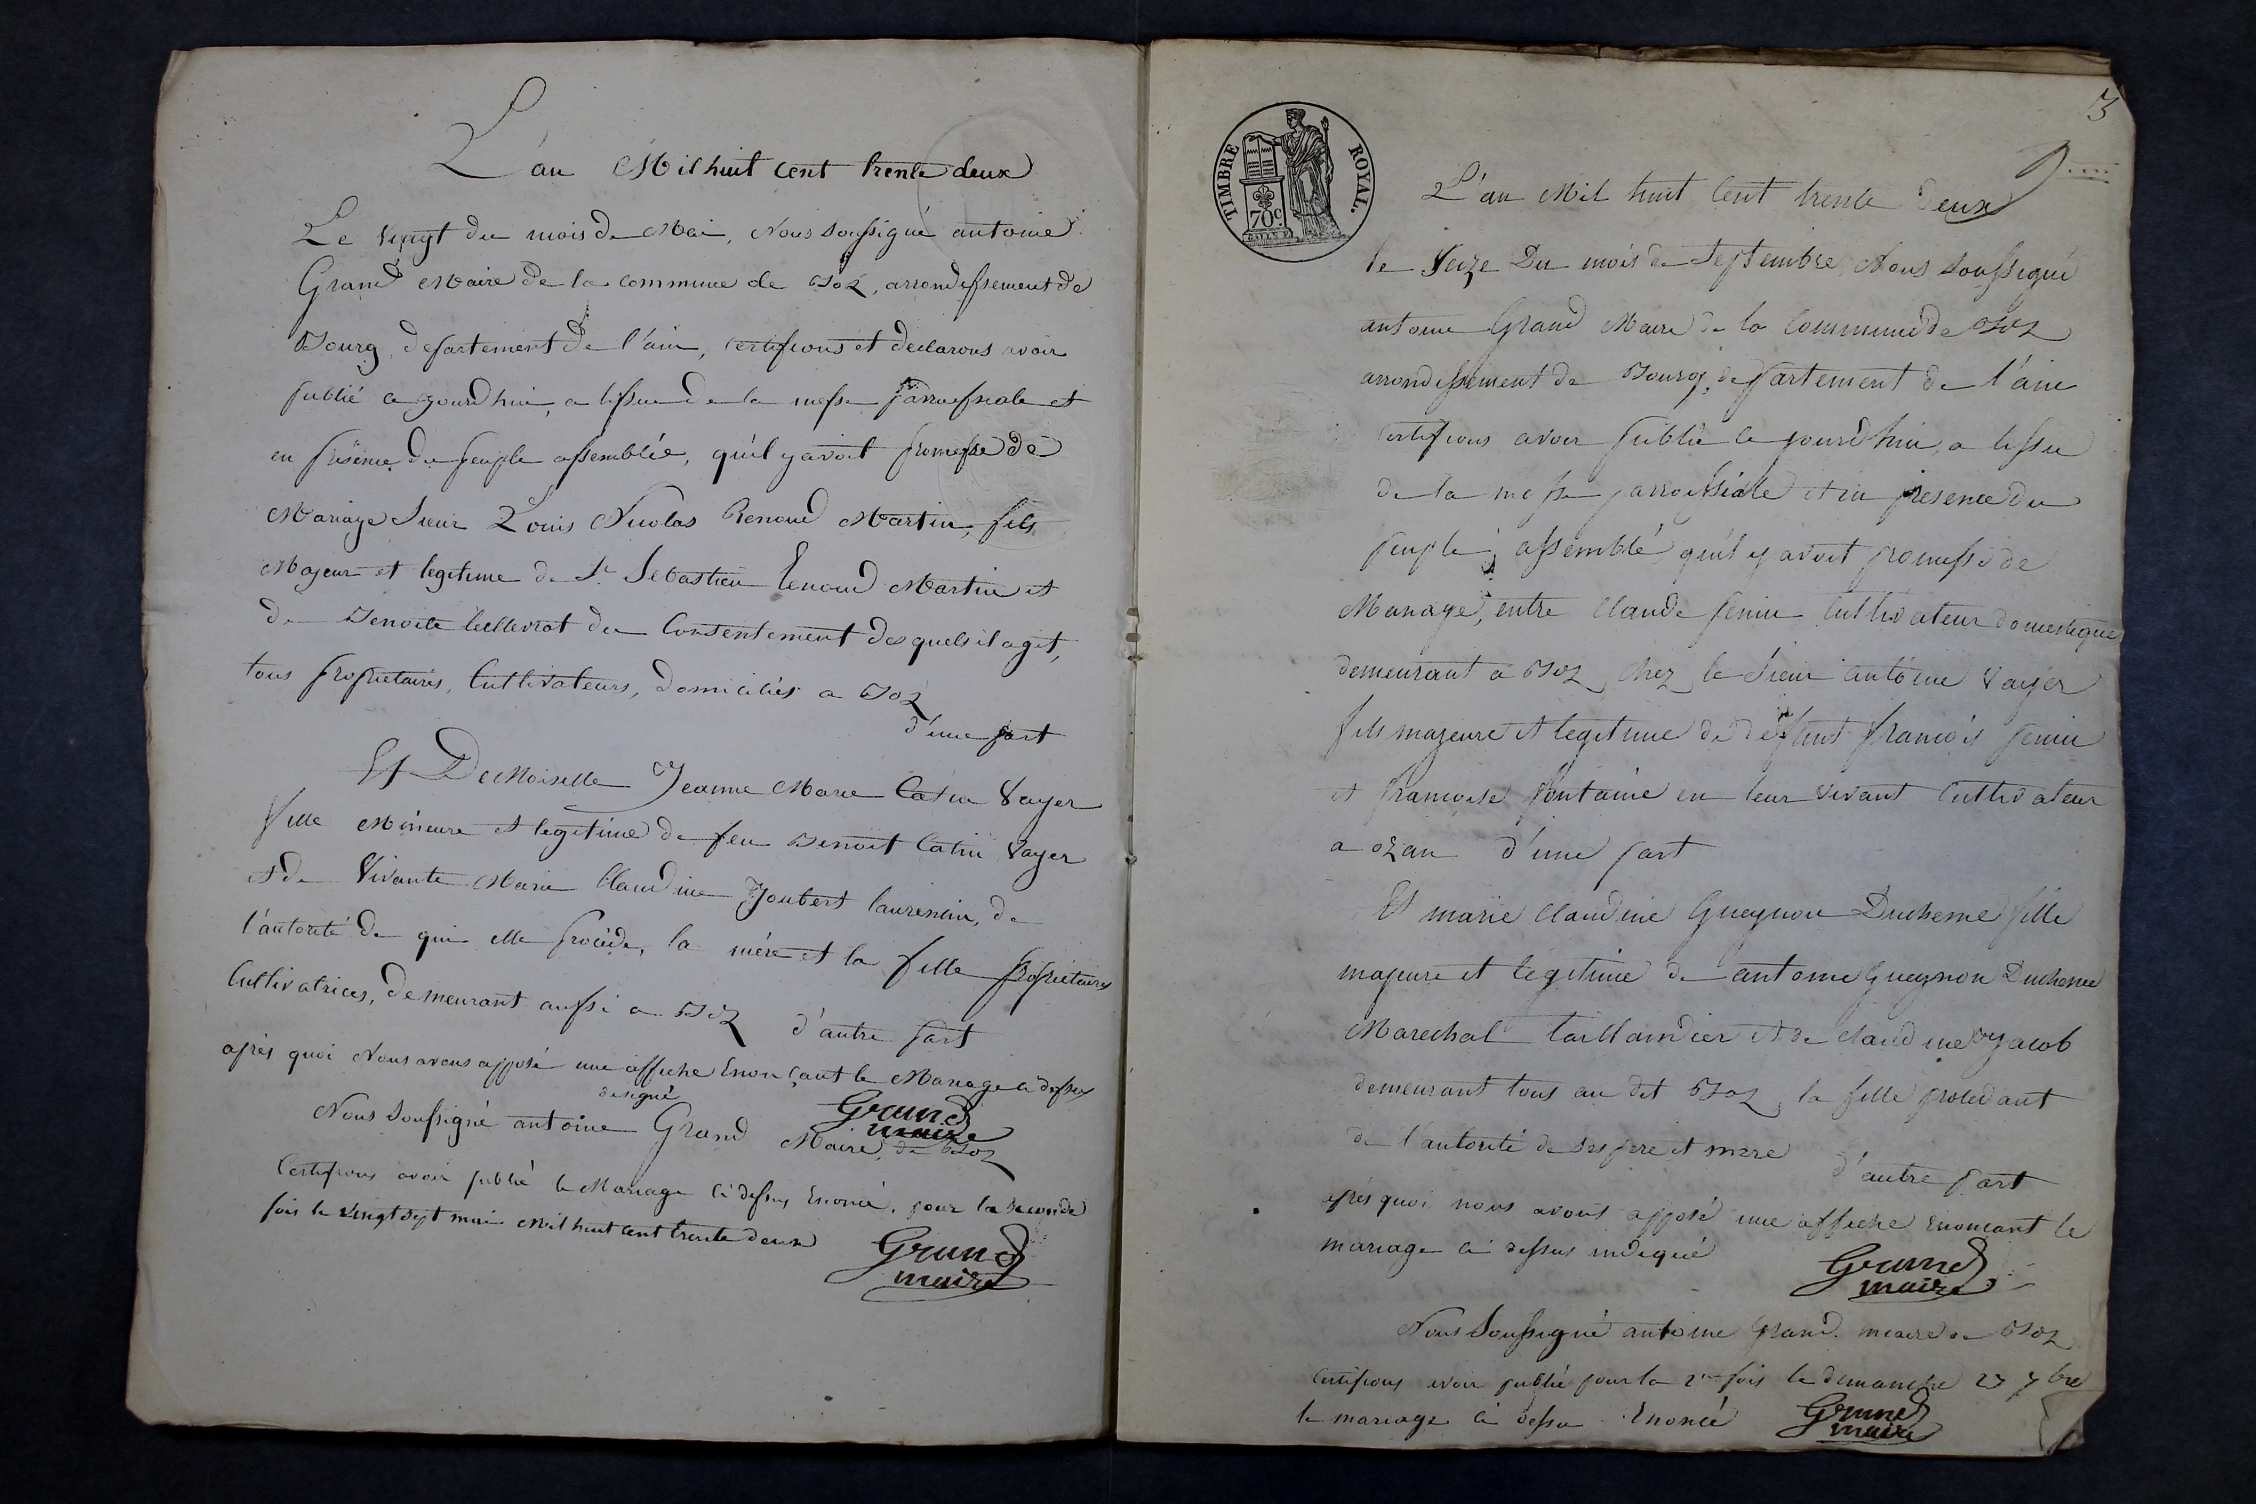 L'an Mil huit cent trente deux
Le vingt du mois de Mai, Nous soussigné antoine
Grand Maire de la commune de Boz, arrondissement de
Bourg, departement de l'ain, certifions et declarons avoir
publié a jourdhui, a lissue de la messe parroissiale et
en présence du peuple assemblée, qu'il y avoit promesse de
Mariage Sieur Louis Nicolas Renoud Martin, fils
Majeur et legitime de Sr Sebastien Renoud Martin et
de Benoite du Consentement des quels il agit,
tous proprietaires, Cultivateurs, domiciliés a Boz
d'une part
Et Demoiselle Jeanne Marie Catin Vayer
fille Mineure et legitime de feu Benoit Catin Vayer
et de Vivante Marie Claudine Joubert laurencin, de
l'autorité de qui elle procéde, la mére et la fille propriétaires
Cultivatrices, demeurant aussi a Boz d'autre part
après quoi Nous avons apposé une affiche Enonçant le Mariage ci dessus
designé
Grand
maire
Nous soussigné antoine Grand Maire, de Boz
Certifions avoir publié le Mariage ci dessus Enoncé, pour la seconde
fois le vingt sept mai mil huit cent trente deux
Grand
maire
3
TIMBRE ROYAL.
70c
L'an Mil huit Cent trente deux
le Seize Du mois de Septembre, Nous soussigné
antoine Grand Maire de la Commune de Boz
arrondissement de Bourg, departement de l'ain
certifions avoir publié ce jourd'hui, a lissue
de la messe parroissiale et en presence du
peuple assemblé, qu'il y avoit promesse de
Mariage, entre Claude fenin Cultivateur domestique
demeurant a Boz, chez le Sieur antoine Vayer
fils majeure et legitime de defunt françois fenin
et françoise fontaine en leur vivant Cultivateur
a ozan d'une part
Et marie Claudine Gueynon Duchesne fille
majeure et legitime de antoine Gueynon Duchesne
Marechal taillandier et de Claudine Jacob
demeurant tous au dit Boz, la fille procedant
de l'autorité de ses pere et mere d'autre part
aprés quoi nous avons apposé une affiche enoncant le
mariage ci dessus indiqué
Grand
maire
Nous Soussigné antoine Grand. maire de Boz
Certifions avoir publié pour la 2me fois le dimanche 23 7bre
le mariage ci dessu Enoncé
Grand
maire